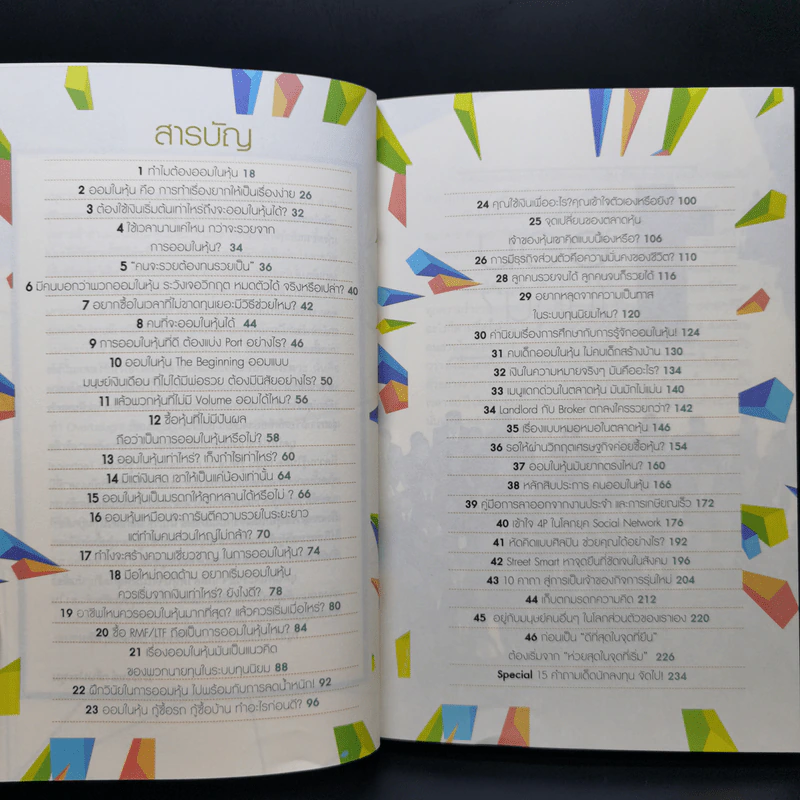 สารบัญ
1 ทำไมต้องออมในหุ้น 18
2 ออมในหุ้น คือ การทำเรื่องยากให้เป็นเรื่องง่าย 26
3 ต้องใช้เงินเริ่มต้นเท่าไหร่ถึงจะออมในหุ้นได้? 32
4 ใช้เวลานานแค่ไหน กว่าจะรวยจาก
การออมในหุ้น? 34
5 "คนจะรวยต้องทนรวยเป็น" 36
6 มีคนบอกว่าพวกออมในหุ้น ระวังเจอวิกฤต หมดตัวได้ จริงหรือเปล่า? 40
7 อยากซื้อในเวลาที่ไม่ขาดทุนเยอะมีวิธีช่วยไหม? 42
8 คนที่จะออมในหุ้นได้ 44
9 การออมในหุ้นที่ดี ต้องแบ่ง Port อย่างไร? 46
10 ออมในหุ้น The Beginning ออมแบบ
มนุษย์เงินเดือน ที่ไม่ได้มีพ่อรวย ต้องมีนิสัยอย่างไร? 50
11 แล้วพวกหุ้นที่ไม่มี Volume ออมได้ไหม? 56
12 ซื้อหุ้นที่ไม่มีปันผล
ถือว่าเป็นการออมในหุ้นหรือไม่? 58
13 ออมในหุ้นเท่าไหร่? เก็งกำไรเท่าไหร่? 60
14 มีแต่เงินสด เขาให้เป็นแค่น้องเท่านั้น 64
15 ออมในหุ้นเป็นมรดกให้ลูกหลานได้หรือไม่ ? 66
16 ออมในหุ้นเหมือนจะการันตีความรวยในระยะยาว
แต่ทำไมคนส่วนใหญ่ไม่กล้า? 70
17 ทำไงจะสร้างความเชี่ยวชาญ ในการออมในหุ้น? 74
18 มือใหม่ถอดด้าม อยากเริ่มออมในหุ้น
ควรเริ่มจากเงินเท่าไหร่? ยังไงดี? 78
19 อาชีพไหนควรออมในหุ้นมากที่สุด? แล้วควรเริ่มเมื่อไหร่? 80
20 ซื้อ RMF/LTF ถือเป็นการออมในหุ้นไหม? 84
21 เรื่องออมในหุ้นมันเป็นแนวคิด
ของพวกนายทุนในระบบทุนนิยม 88
22 ฝึกวินัยในการออมหุ้น ไปพร้อมกับการลดน้ำหนัก! 92
23 ออมในหุ้น กู้ซื้อรถ กู้ซื้อบ้าน ทำอะไรก่อนดี? 96
24 คุณใช้เงินเพื่ออะไร?คุณเข้าใจตัวเองหรือยัง? 100
25 จุดเปลี่ยนของตลาดหุ้น
เจ้าของหุ้นเขาคิดแบบนี้เองหรือ? 106
26 การมีธุรกิจส่วนตัวคือความมั่นคงของชีวิต? 110
28 ลูกคนรวยจนได้ ลูกคนจนก็รวยได้ 116
29 อยากหลุดจากความเป็นทาส
ในระบบทุนนิยมไหม? 120
30 ค่านิยมเรื่องการศึกษากับการรู้จักออมในหุ้น! 124
31 คบเด็กออมในหุ้น ไม่คบเด็กสร้างบ้าน 130
32 เงินในความหมายจริงๆ มันคืออะไร? 134
33 เมนูแดกด่วนในตลาดหุ้น มันมักไม่แม่น 140
34 Landlord กับ Broker ตกลงใครรวยกว่า? 142
35 เรื่องแบบหมอหมอในตลาดหุ้น 146
36 รอให้ผ่านวิกฤตเศรษฐกิจค่อยซื้อหุ้น? 154
37 ออมในหุ้นมันยากตรงไหน? 160
38 หลักสิบประการ คนออมในหุ้น 166
39 คู่มือการลาออกจากงานประจำ และการเกษียณเร็ว 172
40 เข้าใจ 4P ในโลกยุค Social Network 176
41 หัดคิดแบบศิลปิน ช่วยคุณได้อย่างไร? 192
42 Street Smart หาจุดยืนที่ชัดเจนในสังคม 196
43 10 คาถา สู่การเป็นเจ้าของกิจการรุ่นใหม่ 204
44 เก็บตกมรดกความคิด 212
45 อยู่กับมนุษย์คนอื่นๆ ในโลกส่วนตัวของเราเอง 220
46 ก่อนเป็น "ดีที่สุดในจุดที่ยืน"
ต้องเริ่มจาก "ห่วยสุดในจุดที่เริ่ม" 226
Special 15 คำถามเด็ดนักลงทุน จัดไป! 234